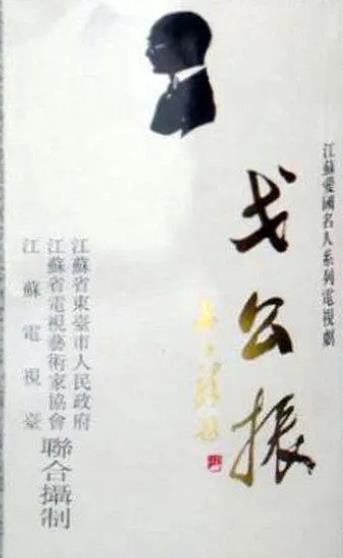 江蘇愛國名人系列電視劇
戈公振
江蘇省東臺市人民政府
江蘇省電視藝術家協會
江蘇電視臺
聯合攝制